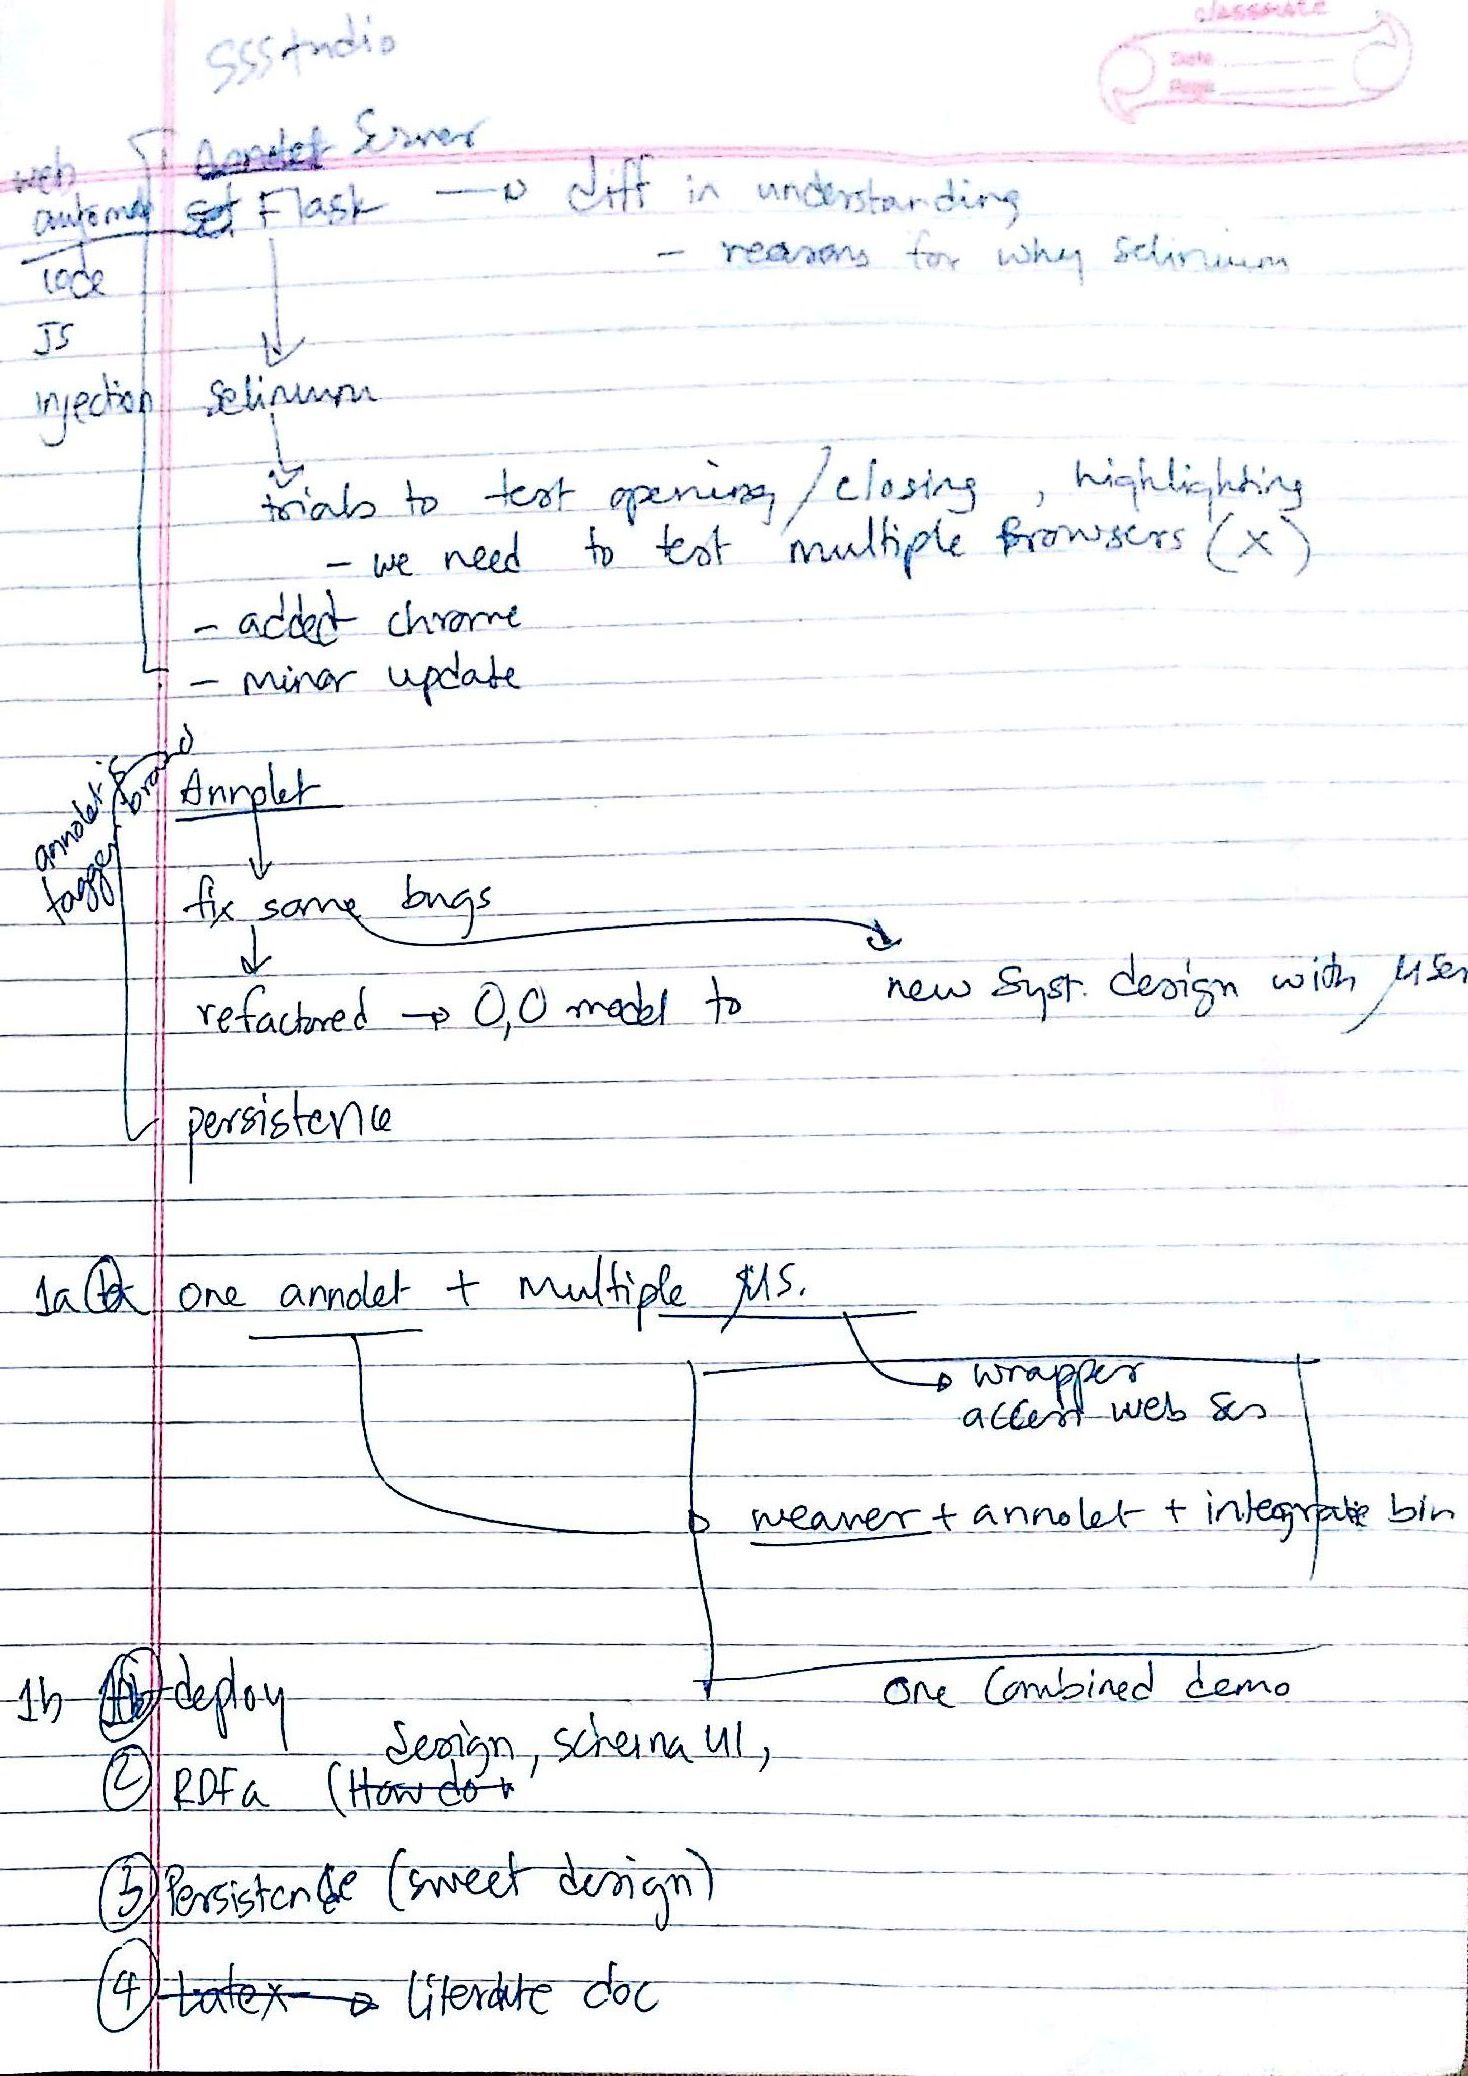 classmate
Date
Page
SSStudio
Annolet Server
web
automa Flask → diff in understanding
- reasons for why Selinium
code
JS
injection Selinium
trials to test opening/closing, highlighting
- we need to test multiple Browsers (x)
- added chrome
- minor update
annolet
tagger
Annolet
fix some bugs
new Syst. design with μser
refactored → O,O model to
persistence
1a one annolet + multiple μs.
wrapper
access web
weaver + annolet + integrate bin
one combined demo
1b deploy
design, schema UI,
② RDFa (How do
③ Persistence (sweet design)
④ Latex → literate doc